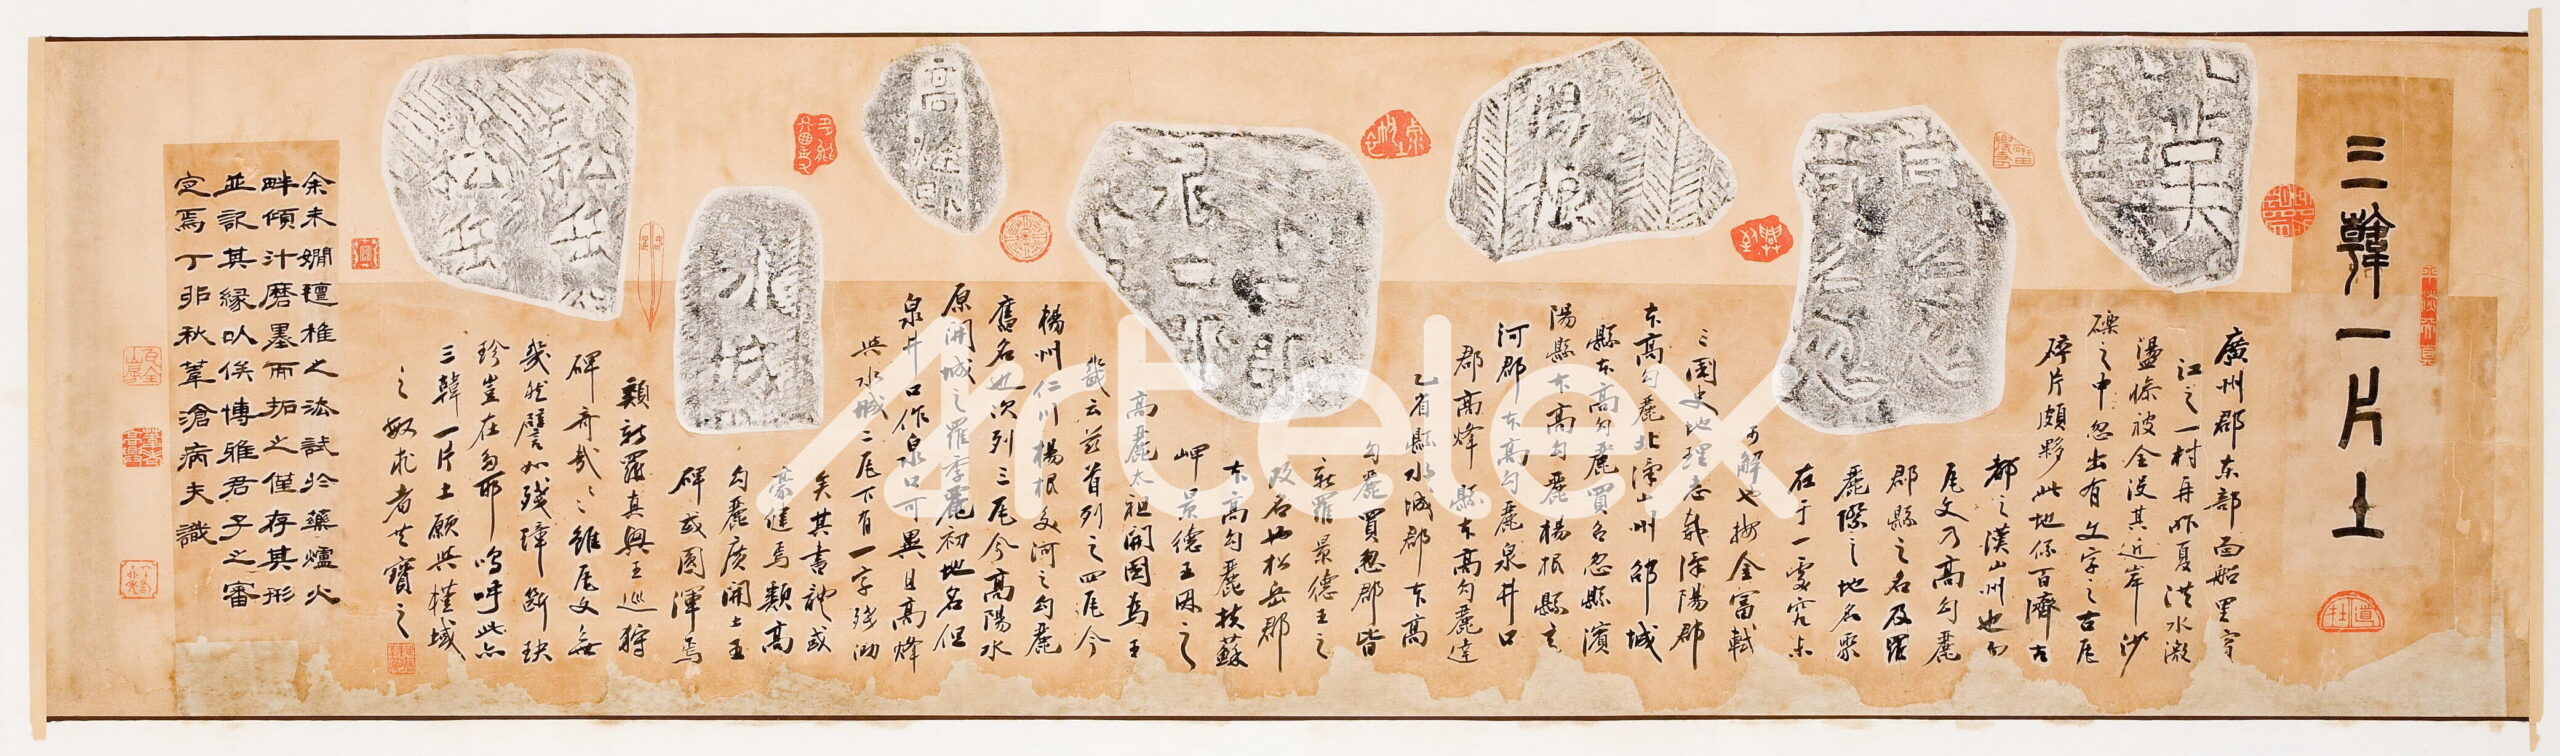 三韓一片土
廣州郡東部面船里寒
江之一村再昨夏洪水激
盪悠被全没其近岸沙
礫之中忽出有文字之古瓦
碎片頗夥此地係百濟古
都之漢山州也而
瓦文乃高勾麗
郡縣之名及羅
麗際之地名聚
在于一處究未
可解也按金富軾
三国史地理志載漂陽郡
本高勾麗北漢山州郃城
縣本高勾麗買召忽縣濱
陽縣本高勾麗楊根縣交
河郡本高勾麗泉井口
郡高烽縣本高勾麗達
乙省縣水城郡本高
勾麗買忽郡皆
新羅景德王之
改名也松岳郡
本高勾麗扶蘇
岬景德王因之
高麗太祖開国為王
畿云茲首列之四瓦今
楊州仁川楊根交河之勾麗
舊名也次列三瓦今高陽水
原開城之羅季麗初地名但
泉井口作泉口可異且高烽
與水城二瓦下有一字残泐
矣其書詭或
豪健焉類高
勾麗廣開土王
碑或圓渾焉
類新羅真興王巡狩
碑奇哉奇哉雖瓦文無
幾然譬如残璋斷玦
珍豈在多耶嗚呼此亦
三韓一片土願與槿域
之敏求者共寶之
余未嫺氈椎之法試於藥爐火
畔傾汁磨墨而拓之僅存其形
並記其緣以俟博雅君子之審
定焉丁卯秋葦滄病夫識
楊根
水城
松岳
松岳
Artelex